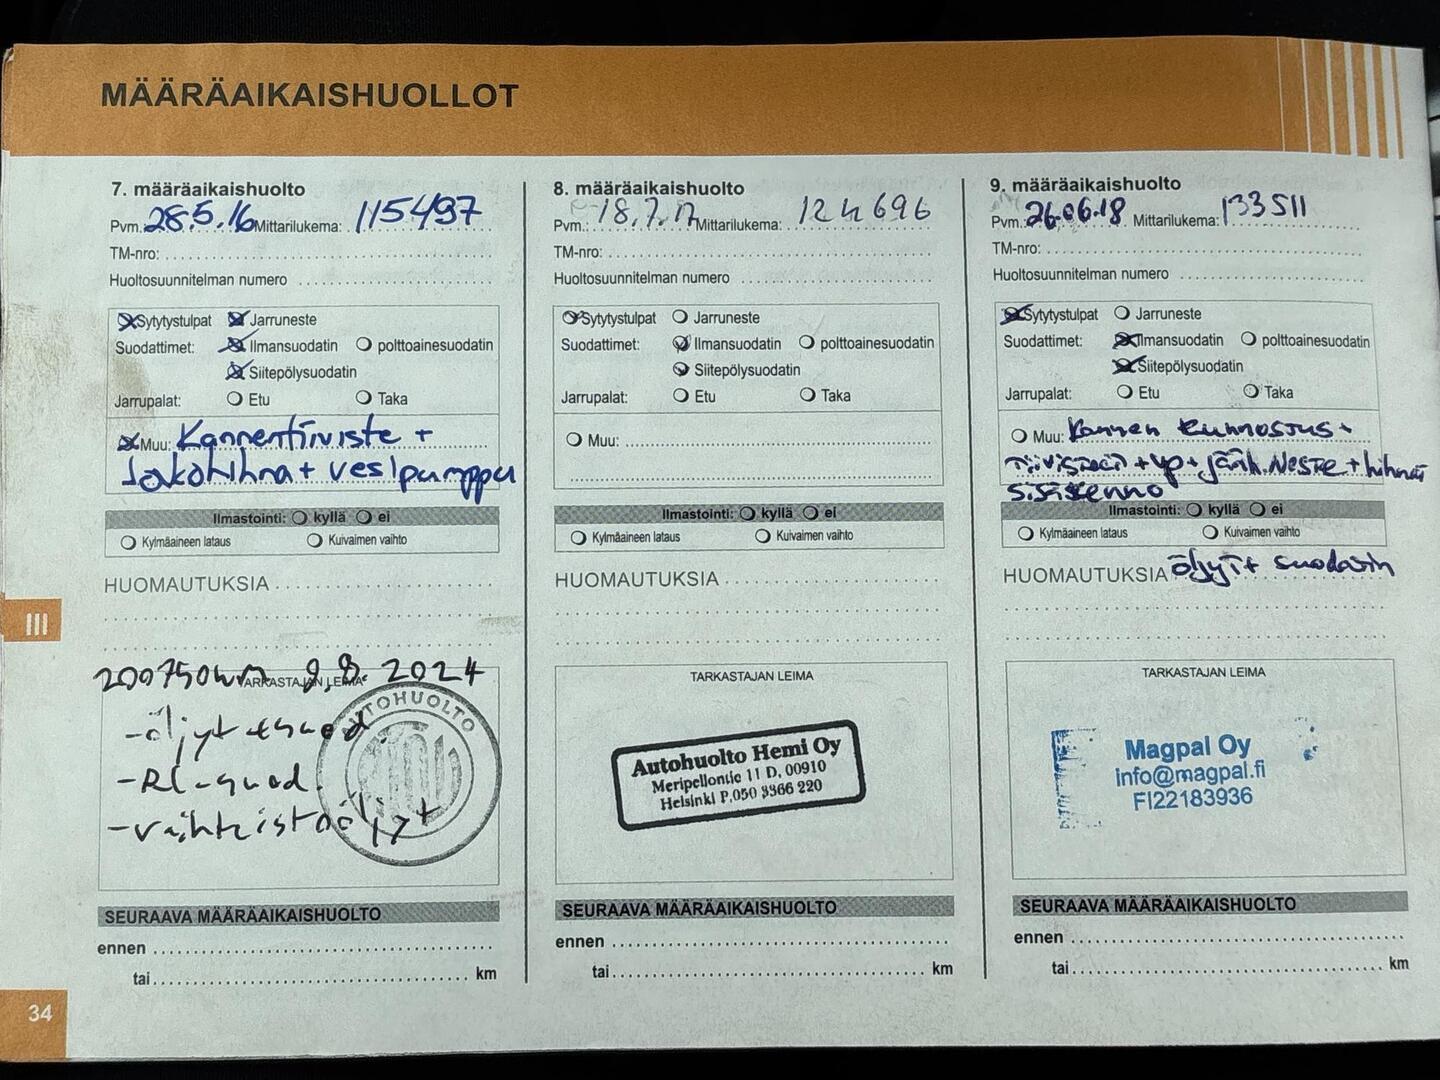 MÄÄRÄAIKAISHUOLLOT
7. määräaikaishuolto
Pvm. 28.5.16 Mittarilukema: 115497
TM-nro:
Huoltosuunnitelman numero
Sytytystulpat Jarruneste
Suodattimet: Ilmansuodatin polttoainesuodatin
Siitepölysuodatin
Jarrupalat: Etu Taka
Muu: Kannentiiviste +
Jakohihna + vesipumppu
Ilmastointi: kyllä ei
Kylmäaineen lataus Kuivaimen vaihto
HUOMAUTUKSIA
200750km 9,8. 2024
TARKASTAJAN LEIMA
AUTOHUOLTO
-öljyt + suod.
-RL-suod.
-vaihteistoöljyt
SEURAAVA MÄÄRÄAIKAISHUOLTO
ennen
tai km
8. määräaikaishuolto
Pvm.: 18.7.17 Mittarilukema: 124696
TM-nro:
Huoltosuunnitelman numero
Sytytystulpat Jarruneste
Suodattimet: Ilmansuodatin polttoainesuodatin
Siitepölysuodatin
Jarrupalat: Etu Taka
Muu:
Ilmastointi: kyllä ei
Kylmäaineen lataus Kuivaimen vaihto
HUOMAUTUKSIA
TARKASTAJAN LEIMA
Autohuolto Hemi Oy
Meripellontie 11 D, 00910
Helsinki P.050 3366 220
SEURAAVA MÄÄRÄAIKAISHUOLTO
ennen
tai km
9. määräaikaishuolto
Pvm.: 26.06.18 Mittarilukema: 133511
TM-nro:
Huoltosuunnitelman numero
Sytytystulpat Jarruneste
Suodattimet: Ilmansuodatin polttoainesuodatin
Siitepölysuodatin
Jarrupalat: Etu Taka
Muu: Kannen kunnostus +
tiivisteet + vp + jääh.neste + hihnat
sisäkenno
Ilmastointi: kyllä ei
Kylmäaineen lataus Kuivaimen vaihto
HUOMAUTUKSIA öljyt + suodatin
TARKASTAJAN LEIMA
Magpal Oy
info@magpal.fi
FI22183936
SEURAAVA MÄÄRÄAIKAISHUOLTO
ennen
tai km
III
34